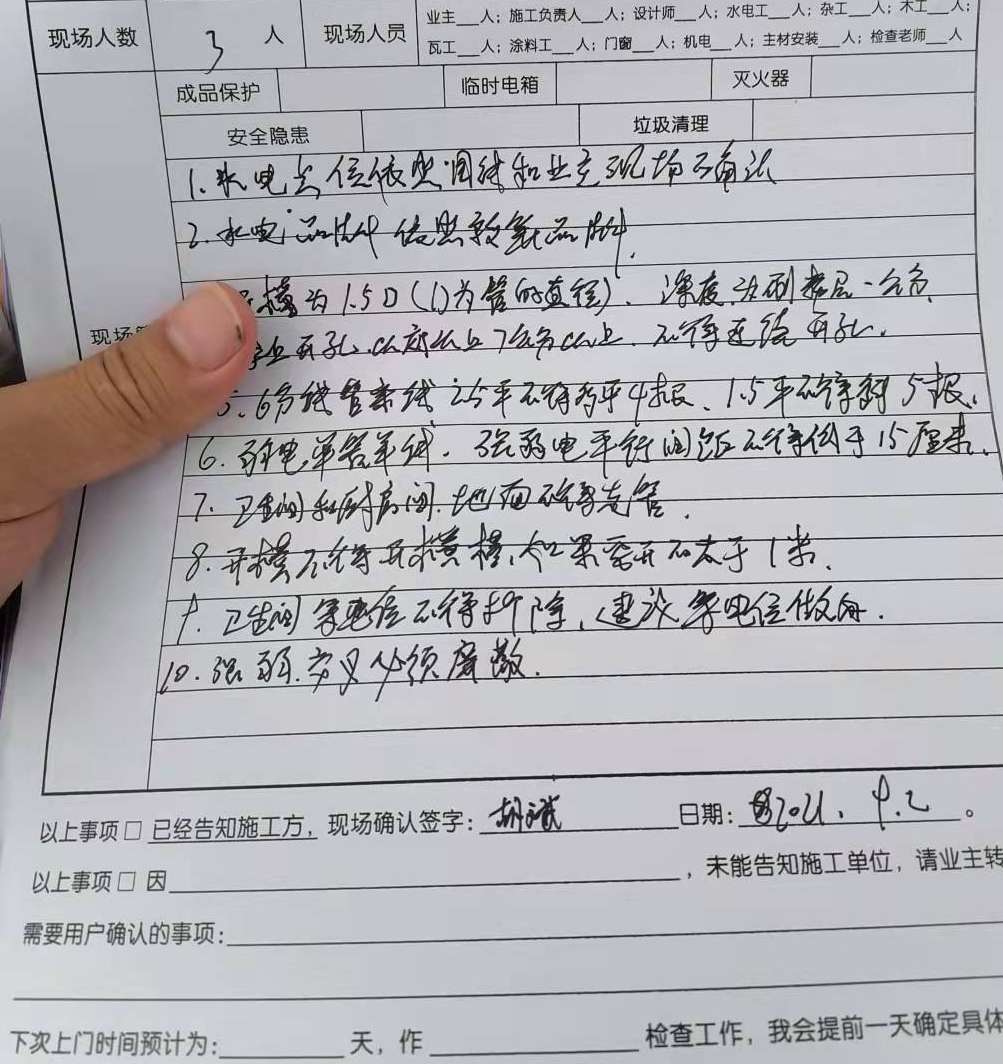 现场人数 3 人 现场人员 业主___人；施工负责人___人；设计师___人；水电工___人；杂工___人；木工___人；
瓦工___人；涂料工___人；门窗___人；机电___人；主材安装___人；检查老师___人
成品保护 临时电箱 灭火器
安全隐患 垃圾清理
1.水电点位依照图纸和业主现场确认
2.水电品牌依照报价品牌.
现场
槽为1.5D(D为管的直径).深度
开孔 以上 不得连续开孔.
5.6分线管穿线 2.5平不得多于4根、1.5平不得 5根.
6.弱电单管单线.强弱电平行间距不得低于15厘米.
7.卫生间和厨房间.地面不得走管.
8.开槽不得开横槽,如果要开不大于1米.
9.卫生间等电位不得拆除,建议等电位做好.
10.强弱.交叉必须屏蔽.
以上事项□已经告知施工方，现场确认签字：胡斌 日期：2021.9.2。
以上事项□因___，未能告知施工单位，请业主转
需要用户确认的事项：
下次上门时间预计为：___天，作___检查工作，我会提前一天确定具体